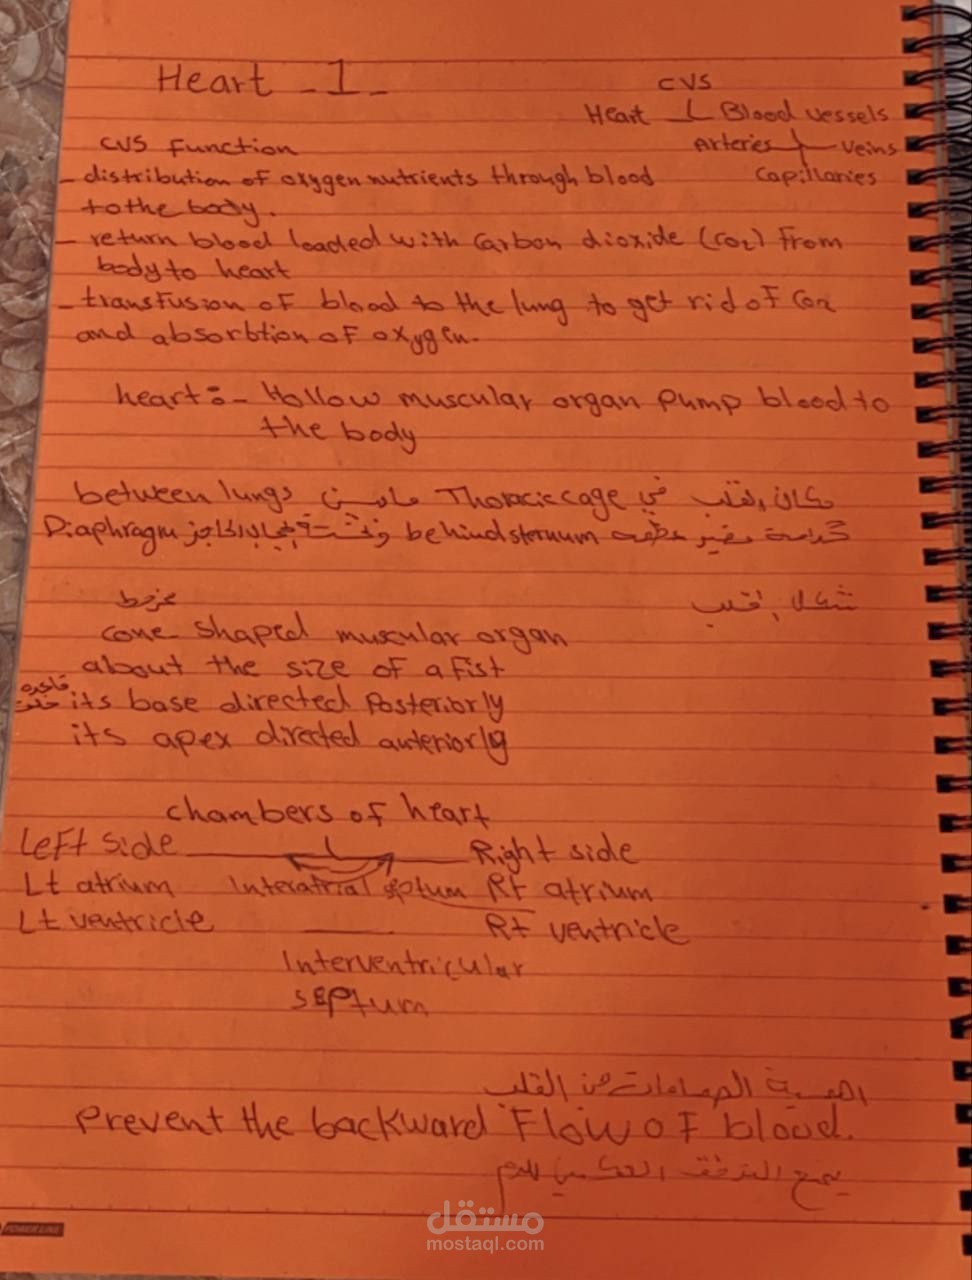 Heart -1-
CVS
Heart Blood vessels
Arteries Veins
Capillaries
CVS Function
- distribution of oxygen nutrients through blood
to the body.
- return blood loaded with Carbon dioxide (CO2) From
body to heart
- transfusion of blood to the lung to get rid of CO2
and absorbtion of oxygen.
heart:- Hollow muscular organ pump blood to
the body
مكان القلب في Thoracic cage مابين between lungs
behind sternum عظمة Diaphragm الحاجز
شكل القلب
مخروط
cone shaped muscular organ
about the size of a fist
its base directed Posteriorly
its apex directed anteriorly
chambers of heart
Left side Right side
Lt atrium Interatrial septum Rt atrium
Lt ventricle Rt ventricle
Interventricular
septum
اهمية الصمامات في القلب
Prevent the backward Flow of blood.
يمنع التدفق العكسي للدم
مستقل
mostaql.com
POWER LINE